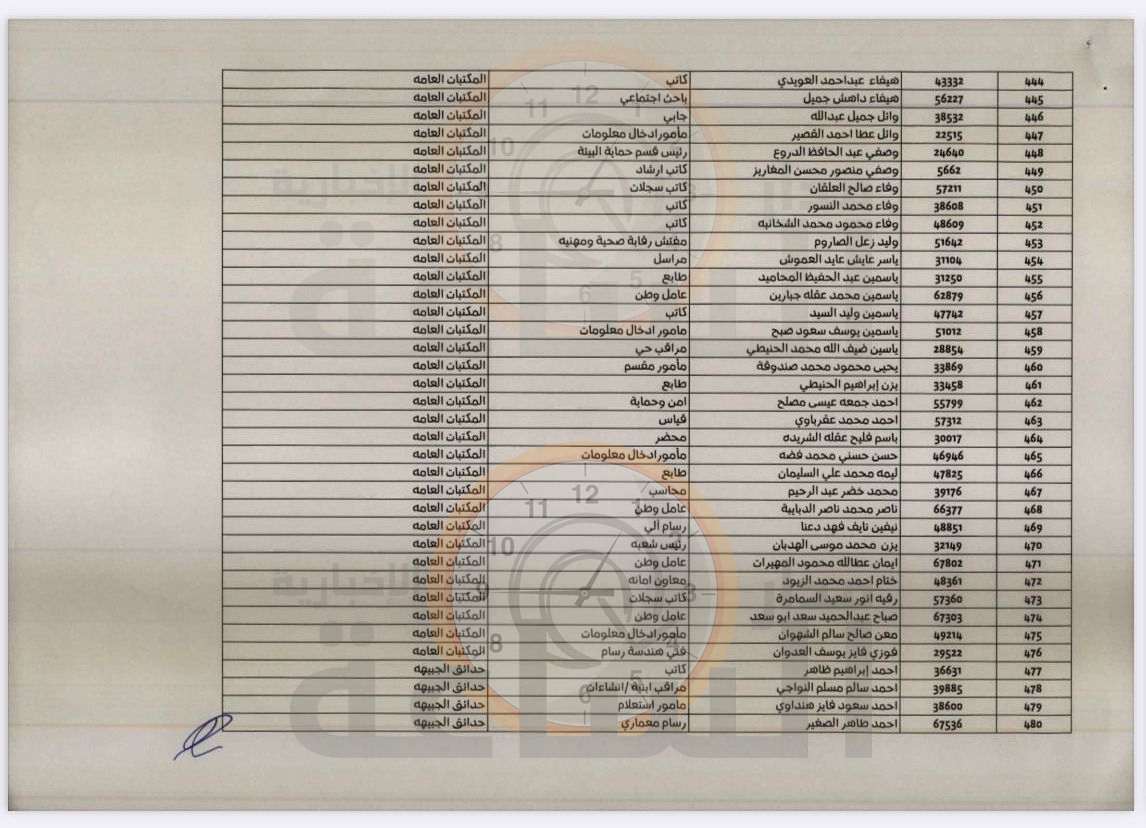 444 43332 هيفاء عبداحمد العويدي كاتب المكتبات العامه
445 56227 هيفاء داهش جميل باحث اجتماعي المكتبات العامه
446 38532 وائل جميل عبدالله جابي المكتبات العامه
447 22515 وائل عطا احمد القصير مأمورادخال معلومات المكتبات العامه
448 24640 وصفي عبد الحافظ الدروع رئيس قسم حماية البيئة المكتبات العامه
449 5662 وصفي منصور محسن المغاريز كاتب ارشاد المكتبات العامه
450 57211 وفاء صالح العلقان كاتب سجلات المكتبات العامه
451 38608 وفاء محمد النسور كاتب المكتبات العامه
452 48609 وفاء محمود محمد الشخانبه كاتب المكتبات العامه
453 51642 وليد زعل الصاروم مفتش رقابة صحية ومهنيه المكتبات العامه
454 31104 ياسر عايش عايد العموش مراسل المكتبات العامه
455 31250 ياسمين عبد الحفيظ المحاميد طابع المكتبات العامه
456 62879 ياسمين محمد عقله جبارين عامل وطن المكتبات العامه
457 47742 ياسمين وليد السيد كاتب المكتبات العامه
458 51012 ياسمين يوسف سعود صبح مامور ادخال معلومات المكتبات العامه
459 28854 ياسين ضيف الله محمد الحنيطي مراقب حي المكتبات العامه
460 33869 يحيى محمود محمد صندوقة مأمور مقسم المكتبات العامه
461 33458 يزن إبراهيم الحنيطي طابع المكتبات العامه
462 55799 احمد جمعه عيسى مصلح امن وحماية المكتبات العامه
463 57312 احمد محمد عقرباوي قياس المكتبات العامه
464 30017 باسم فليح عقله الشريده محضر المكتبات العامه
465 46946 حسن حسني محمد فضه مأمورادخال معلومات المكتبات العامه
466 47825 ليمه محمد علي السليمان طابع المكتبات العامه
467 39176 محمد خضر عبد الرحيم محاسب المكتبات العامه
468 66377 ناصر محمد ناصر الدبايبة عامل وطن المكتبات العامه
469 48851 نيفين نايف فهد دعنا رسام آلي المكتبات العامه
470 32149 يزن محمد موسى الهدبان رئيس شعبه المكتبات العامه
471 67802 ايمان عطالله محمود المهيرات عامل وطن المكتبات العامه
472 48361 ختام احمد محمد الزيود معاون امانه المكتبات العامه
473 57360 رقيه انور سعيد السمامرة كاتب سجلات المكتبات العامه
474 67303 صباح عبدالحميد سعد ابو سعد عامل وطن المكتبات العامه
475 49214 معن صالح سالم الشهوان مأمورادخال معلومات المكتبات العامه
476 29522 فوزي فايز يوسف العدوان فني هندسة رسام المكتبات العامه
477 36631 احمد إبراهيم ظاهر كاتب حدائق الجبيهه
478 39885 احمد سالم مسلم النواجي مراقب ابنية /انشاءات حدائق الجبيهه
479 38600 احمد سعود فايز هنداوي مامور استعلام حدائق الجبيهه
480 67536 احمد طاهر الصغير رسام معماري حدائق الجبيهه